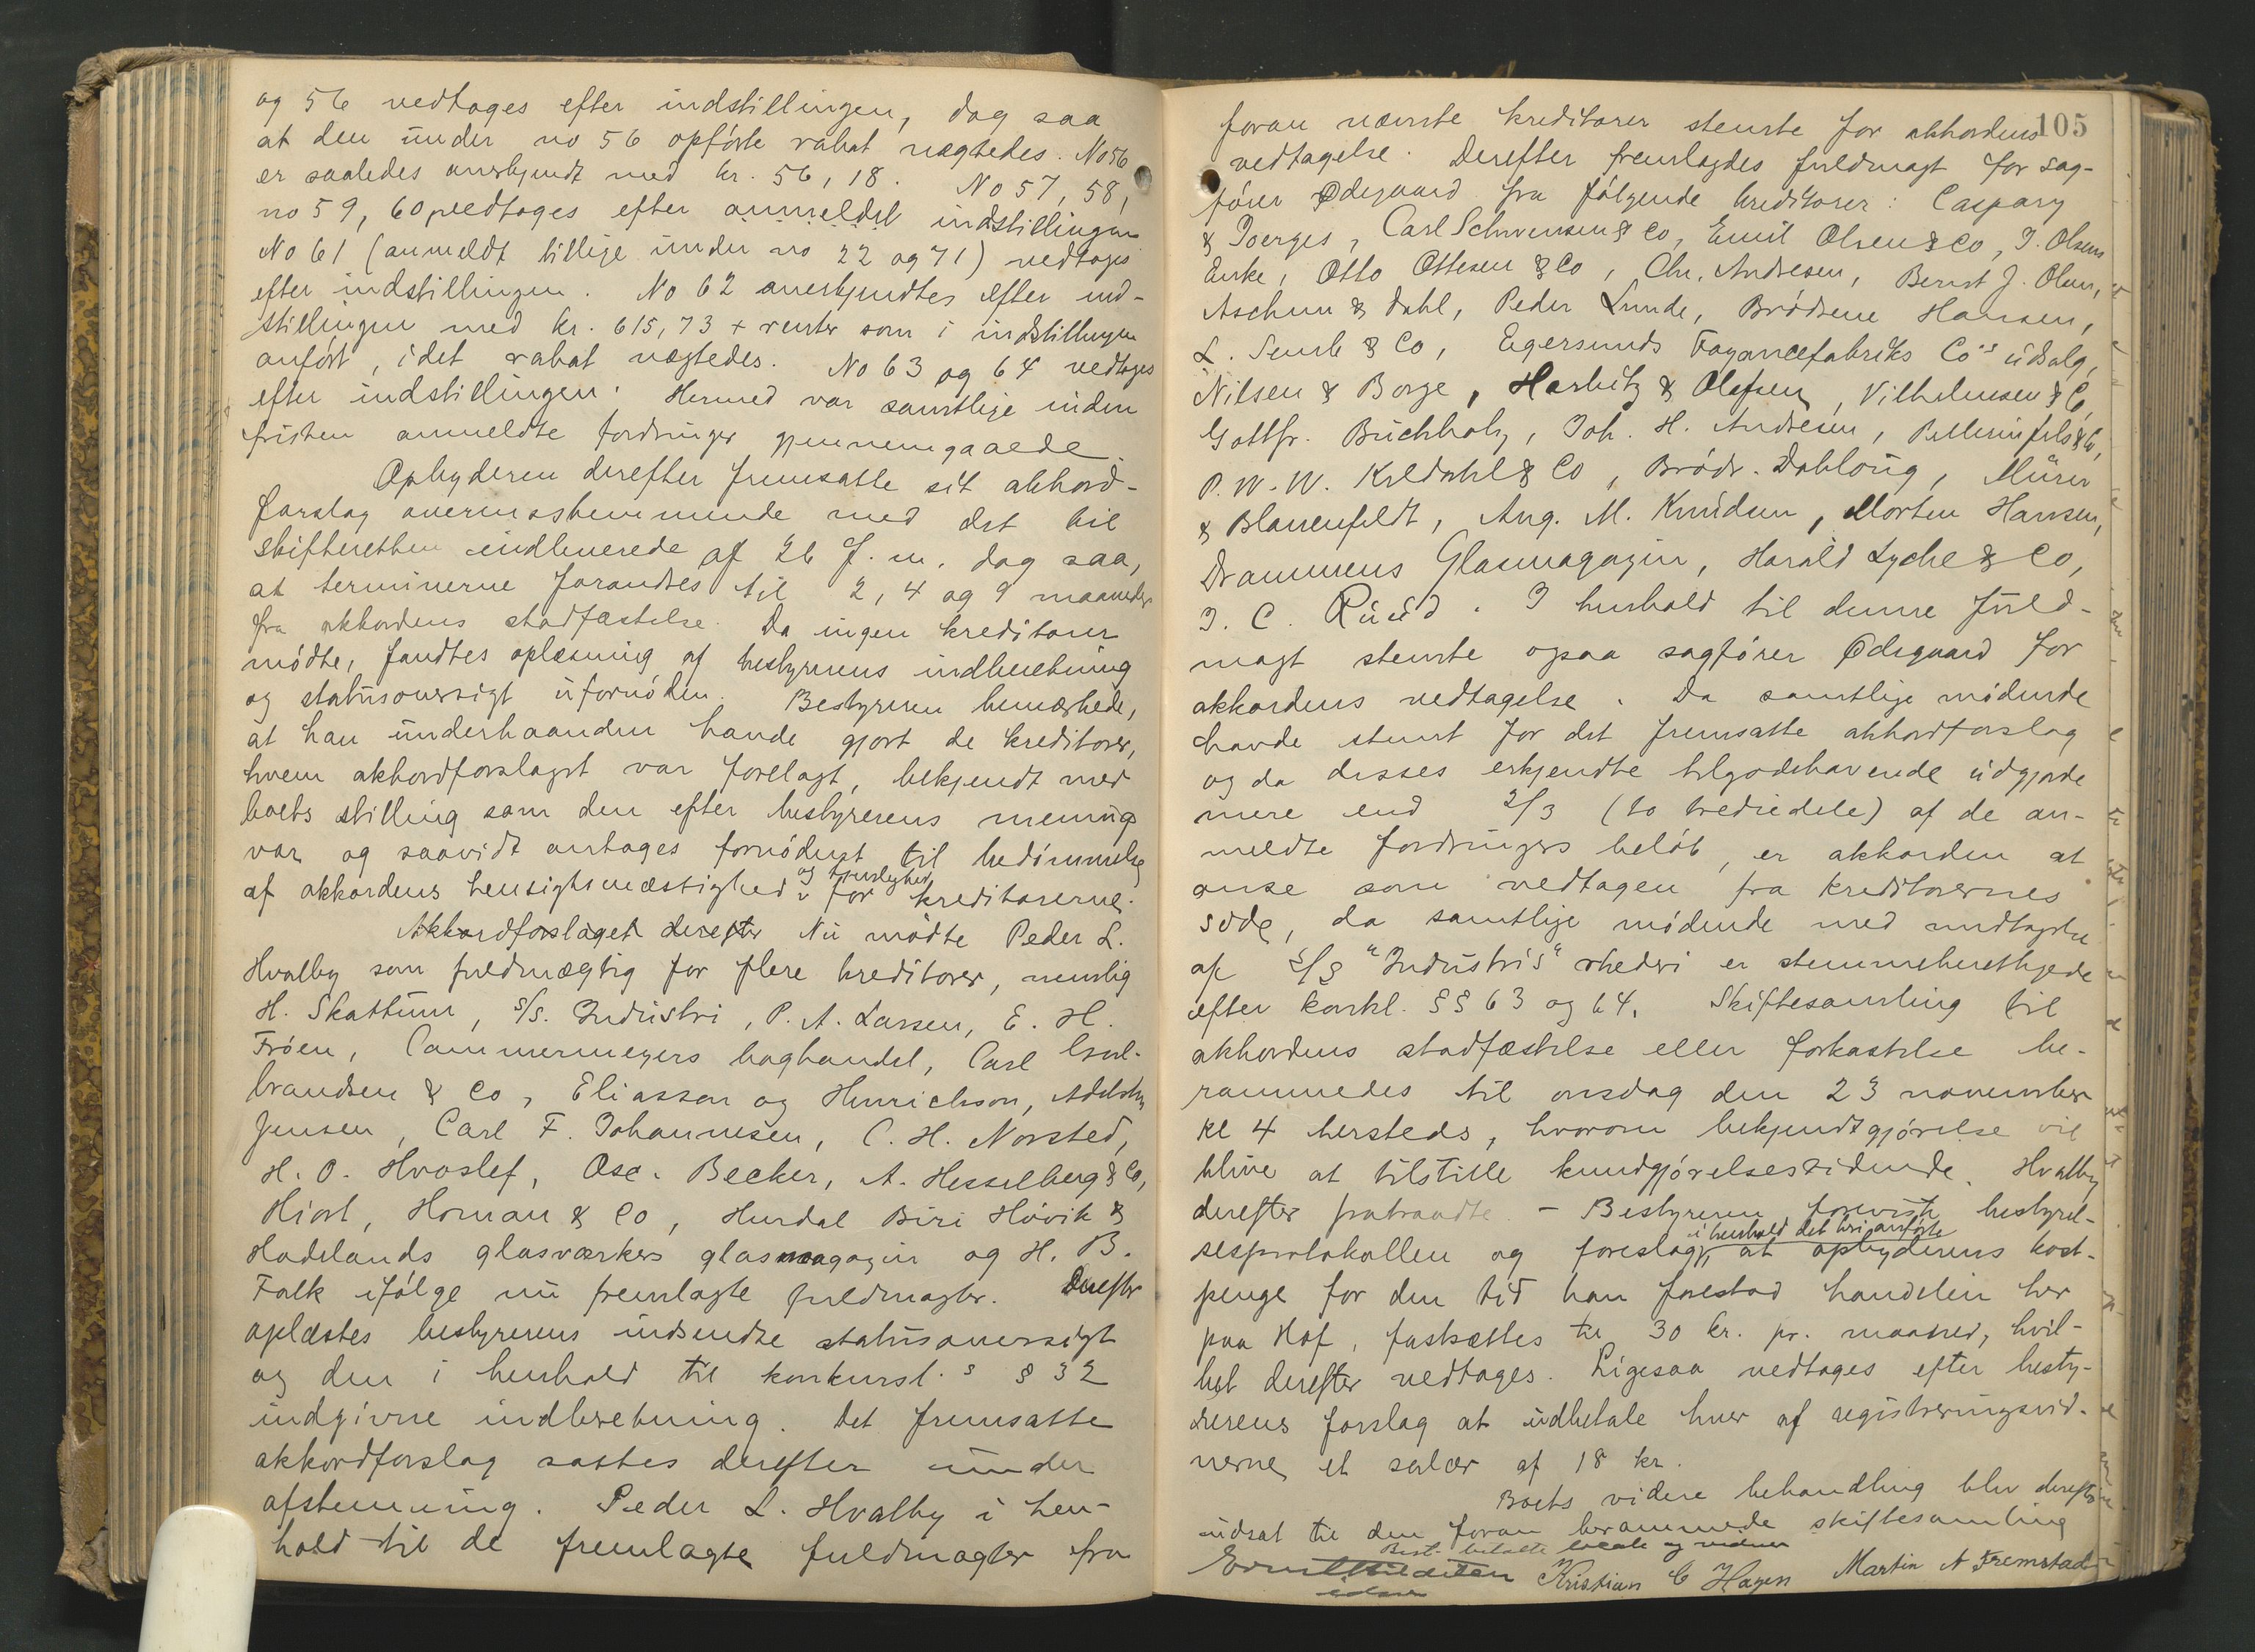 og 56 vedtages efter indstillingen, dog saa
at den under no 56 opförte rabat nægtedes. No 56
er saaledes anerkjendt med kr. 56,18. No 57, 58,
no 59, 60 vedtages efter anmeldel indstillingen
No 61 (anmeldt tillige under no 22 og 71) vedtages
efter indstillingen. No 62 anerkjendtes efter ind-
stillingen med kr. 615,73 + renter som i indstillingen
anfört, idet rabat nægtedes. No 63 og 64 vedtages
efter indstillingen. Hermed var samtlige inden
fristen anmeldte fordringer gjennemgaaede.
Opbyderen derefter fremsatte sit akkord-
forslag overensstemmende med det til
skifteretten indleverede af 26 f. m. dog saa,
at terminerne forandres til 2, 4 og 9 maaneder
fra akkordens stadfæstelse. Da ingen kreditorer
mödte, fandtes oplæsning af bestyrerens indberetning
og statusoversigt ufornöden. Bestyreren bemærkede,
at han underhaanden havde gjort de kreditorer,
hvem akkordforslaget var forelagt, bekjendt med
boets stilling som den efter bestyrerens mening
var og saavidt antages fornödent til bedömmelse
af akkordens hensigtsmæstighed og tjenlighed for kreditorerne.
Akkordforslaget derefter Nu mödte Peder L.
Hvalby som fuldmægtig for flere kreditorer, nemlig
H. Skattum, s/s. Industri, P. A. Larsen, E. H.
Fröen, Cammermeyers boghandel, Carl Gul-
brandsen & Co, Eliasson og Henrichson, Adelsten
Jensen, Carl F. Johannesen, C. H. Norsted,
H. O. Hvoslef, Osc. Becker, A. Hesselberg & Co,
Hiort, Homan & Co, Hurdal Biri Hövik &
Hadelands glasværkers glasmagazin og H. B.
Falk ifölge nu fremlagte fuldmagter. Derefter
oplæstes bestyrerens indsendte statusoversigt
og den i henhold til konkursl.s § 32
indgivne indberetning. Det fremsatte
akkordforslag sattes derefter under
afstemning. Peder L. Hvalby i hen-
hold til de fremlagte fuldmagter fra
105
foran nævnte kreditorer stemte for akkordens
vedtagelse. Derefter fremlagdes fuldmagt for sag-
förer Ødegaard fra fölgende kreditorer: Caspary
& Joerges, Carl Schwensen & Co, Emil Olsen & Co, J. Olsens
Enke, Otto Ottesen & Co, Chr. Andresen, Bernt J. Olsen,
Aschim & Dahl, Peder Lunde, Brödrene Hansen,
L. Semb & Co, Egersunds Fayancefabriks Co's udsalg,
Nilsen & Borge, Harbitz & Olafsen, Vilhelmsen & C,
Gottfr. Buchholz, Joh. H. Andresen, Pellerin fils & Co,
P. W. W. Kildahl & Co, Brödr. Dobloug, Mürer
& Blanenfeldt, Aug. M. Knudsen, Morten Hansen,
Drammens Glasmagazin, Harald Lyche & Co,
J. C. Ruud. I henhold til denne fuld-
magt stemte ogsaa sagförer Ødegaard for
akkordens vedtagelse. Da samtlige mödende
havde stemt for det fremsatte akkordforslag
og da disses erkjendte tilgodehavende udgjorde
mere end 2/3 (to trediedele) af de an-
meldte fordringers belöb, er akkorden at
anse som vedtagen fra kreditorernes
side, da samtlige mödende med undtagelse
af s/s "Industri's" rhederi er stemmeberettigede
efter konkl. §§ 63 og 64. Skiftesamling til
akkordens stadfæstelse eller forkastelse be-
rammedes til onsdag den 23 november
kl 4 hersteds, hvorom bekjendtgjörelse vil
blive at tilstille kundgjörelsestidende. Hvalby
derefter fratraadte. – Bestyreren foreviste bestyrel-
sesprotokollen og foreslog, i henhold det heri anförte at opbyderens kost-
penge for den tid han forestod handelen her
paa Hof, fastsættes til 30 kr. pr. maaned, hvil-
ket derefter vedtages. Ligesaa vedtages efter besty-
rerens forslag at udbetale hver af registreringsvid-
nerne et salær af 18 kr.
Boets videre behandling blev derefter
udsat til den foran berammede skiftesamling
Best. betalte locale og vidner
Kristian C Hagen Martin A Fremstad